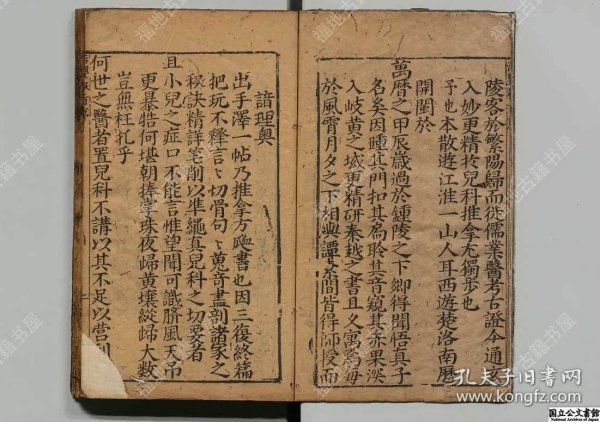 陵客於繁陽歸而從儒業醫考古證今通玄
入妙更精於兒科推拿尤獨步也
予也本散遊江淮一山人耳西遊楚洛南歷
開閩於
萬曆之甲辰歲過於鍾陵之下卿得聞悟真子
名矣因踵其門扣其扃聆其音窺其赤果深
入岐黃之域更精研秦越之書且又寓意每
於風霄月夕之下相與譚其間皆得師授而
諳理奧
出手澤一帖乃推拿方脉書也因三復終篇
把玩不釋言〻切骨句〻蒐奇盡剖諸家之
秘訣精詳筆削以準繩真兒科之切要者
且小兒之症口不能言惟望聞可識臍風天吊
更暴牲何堪朝捧掌珠夜歸黃壤縱歸大數
豈無枉托乎
何世之醫者置兒科不講以其不足以營利
孔夫子旧书网
www.kongfz.com
国立公文書館
National Archives of Japan
福地古籍书屋